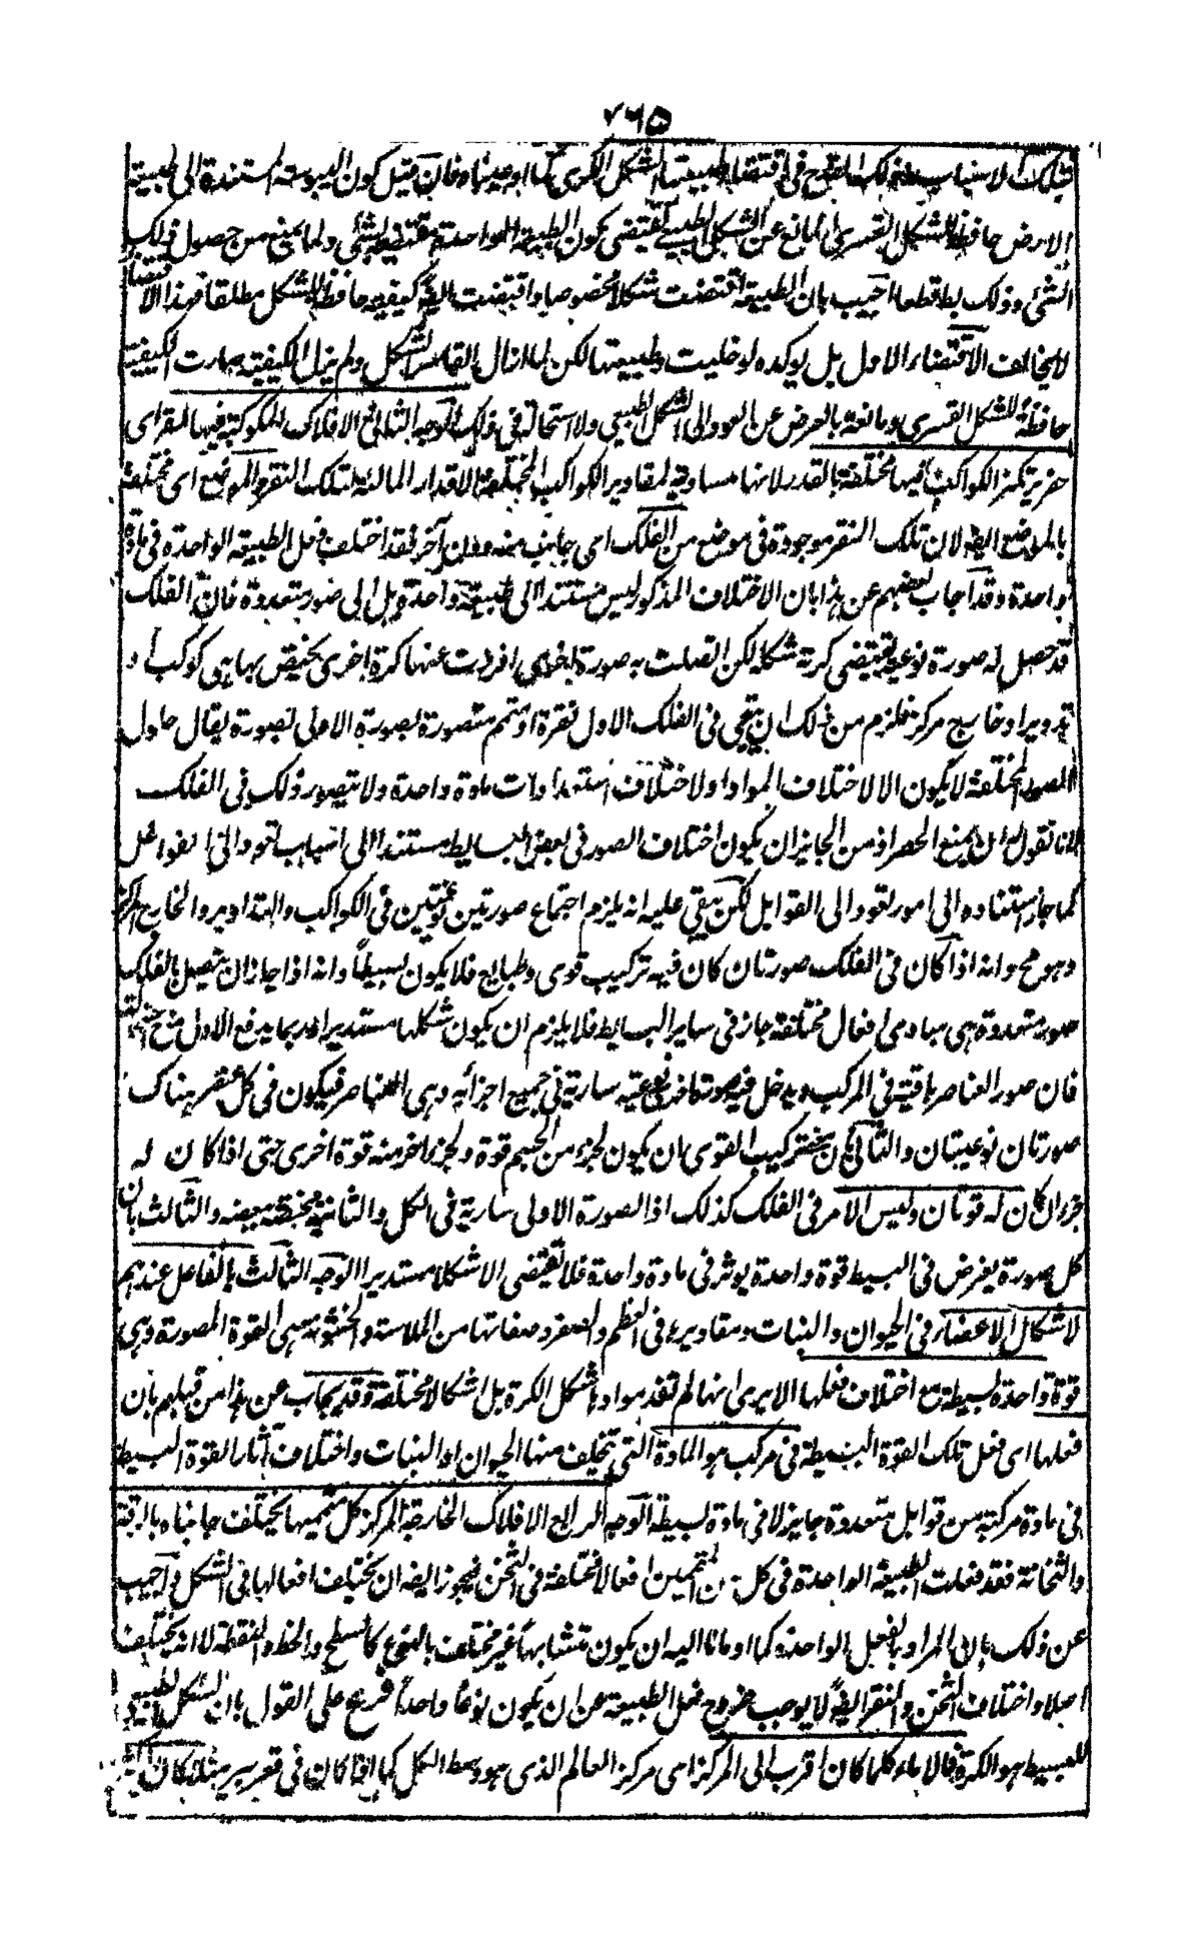 ٧٦٥
تلك الاسباب ذلك القدح فى اقتضاء طبيعتها الشكل الكروى كما اومينا فان قيل كون اليبوسة مستندة الى طبيعة
الارض حافظة للشكل القسرى المانع عن الشكل الطبيعى يقتضى كون الطبيعة الواحدة مقتضية لشئ ولما يمنع من حصول ذلك
الشئ وذلك بط قطعا اجيب بان الطبيعة اقتضت شكلا مخصوصا واقتضت ايضا كيفية حافظة للشكل مطلقا فهذا الاقتضاء
لا يخالف الاقتضاء الاول بل يوكده لو خليت وطبيعتها لكن لما ازال القاسر الشكل ولم يزل الكيفية صارت الكيفية
حافظة للشكل القسرى ومانعة بالعرض عن العود الى الشكل الطبيعى ولا استحالة فى ذلك الوجه الثانى الافلاك المكوكبة فيها نقر اى
حفر يركز الكواكب فيها مختلفة بالقدر لانها مساوية لمقادير الكواكب المختلفة الاقدار المالئة لتلك النقر والموضع اى مختلفة
بالموضع ايضا لان تلك النقر موجودة فى موضع من الفلك اى جانب منه دون آخر فقد اختلف فعل الطبيعة الواحدة فى مادة
واحدة وقد اجاب بعضهم عن هذا بان الاختلاف المذكور ليس مستندا الى طبيعة واحدة بل الى صور متعددة فان الفلك
قد حصل له صورة نوعية تقتضى كرية شكله لكن اتصلت به صورة اخرى افرزت عنها كرة اخرى يختص بها هى كوكب او
تدويرا وخارج مركز فلزم من ذلك ان يبقى فى الفلك الاول نقرة او متمم متصورة بصورة الاولى لصورة يقال حلول
الصور المختلفة لا يكون الا لاختلاف المواد او لاختلاف استعدادات مادة واحدة ولا يتصور ذلك فى الفلك
لانا نقول يمنع الحصر اذ من الجائز ان يكون اختلاف الصور فى بعض البسايط مستندا الى اسباب تعود الى الفواعل
كما جاز استناده الى امور تعود الى القوابل لكن يبقى عليه انه يلزم اجتماع صورتين نوعيتين فى الكواكب والتداوير والخارج المركز
وهو مح وانه اذا كان فى الفلك صورتان كان فيه تركيب قوى وطبايع فلا يكون بسيطا وانه اذا جاز ان يتصل بالفلك
صور متعددة هى مبادى افعال مختلفة جاز فى ساير البسايط فلا يلزم ان يكون شكلها مستديرا وربما يدفع الاول
فان صور العناصر باقية فى المركب ويدخل فيه صورة نوعية سارية فى جميع اجزائه وهى العناصر فيكون فى كل عنصر هناك
صورتان نوعيتان والثانى بان تركيب القوى ان يكون لجزء من الجسم قوة ولجزء اخر منه قوة اخرى حتى اذا كان له
جزءان كان له قوتان وليس الامر فى الفلك كذلك اذ الصورة الاولى سارية فى الكل والثانية مختصة ببعضه والثالث بان
كل صورة يفرض فى البسيط قوة واحدة يوثر فى مادة واحدة فلا تقتضى الا شكلا مستديرا الوجه الثالث الفاعل عندهم
لاشكال الاعضاء فى الحيوان والنبات ومقاديرها فى العظم والصغر وصفاتها من الملاسة والخشونة هى القوة المصورة وهى
قوة واحدة بسيطة مع اختلاف فعلها الا يرى انها لم تفد موادها شكل الكرة بل اشكالا مختلفة وقد يجاب عن هذا من قبلهم بان
فعلها اى فعل تلك القوة البسيطة فى مركب هو المادة التى يتخلف منها الحيوان او النبات واختلاف آثار القوة البسيطة
فى مادة مركبة من قوابل متعددة جايز لا فى مادة بسيطة الوجه الرابع الافلاك الخارجة المركز كل متمميها يختلف جانباه بالرقة
والثخانة فقد فعلت الطبيعة الواحدة فى كل من المتممين افعالا مختلفة فى الثخن فيجوز ايضا ان يختلف افعالها فى الشكل واجيب
عن ذلك بان المراد بالفعل الواحد كما اومانا اليه ان يكون متشابها غير مختلف بالنوع كالسطح والخط والنقطة لا انه يختلف
اصلا واختلاف الثخن والنقر ايضا لا يوجب خروج فعل الطبيعة عن ان يكون نوعا واحدا فرع على القول بان الشكل الطبيعى
للبسيط هو الكرة فالاناء كلما كان اقرب الى المركز اى مركز العالم الذى هو وسط الكل كما اذا كان فى قعر بير مثلا كان